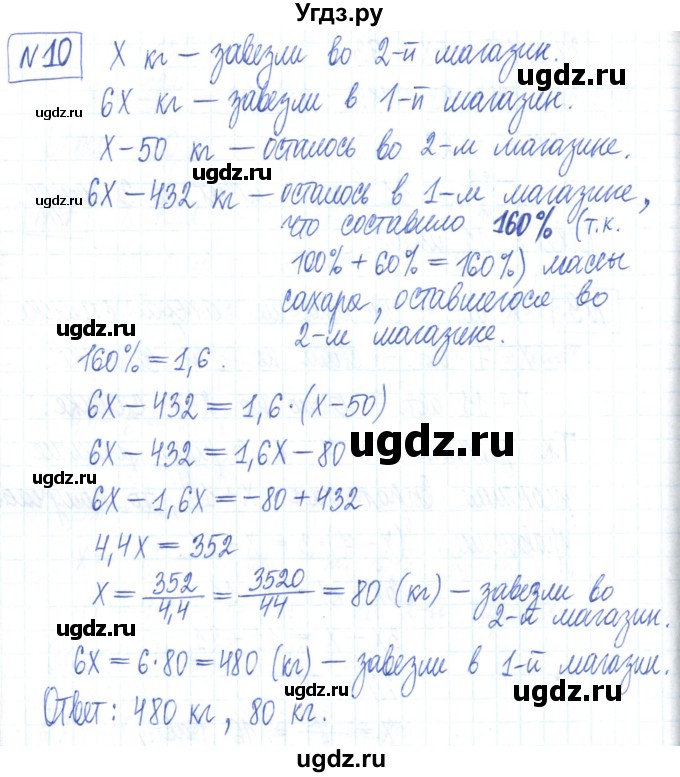 Угдз.ру
№10 X кг – завезли во 2-й магазин.
ugdz.ru
ugdz.ru
6X кг – завезли в 1-й магазин.
X-50 кг – осталось во 2-м магазине.
ugdz.ru
6X-432 кг – осталось в 1-м магазине,
что составило 160% (т.к.
100% + 60% = 160%) массы
сахара, оставшегося во
ugdz.ru
2-м магазине.
160% = 1,6.
6X-432 = 1,6·(X-50)
6X-432 = 1,6X-80
ugdz.ru
ugdz.ru
6X-1,6X = -80+432
4,4X = 352
X = 352/4,4 = 3520/44 = 80 (кг) – завезли во
2-й магазин.
ugdz.ru
ugdz.ru
6X = 6·80 = 480 (кг) – завезли в 1-й магазин.
ugdz.ru
Ответ: 480 кг, 80 кг.
ugdz.ru
ugdz.ru